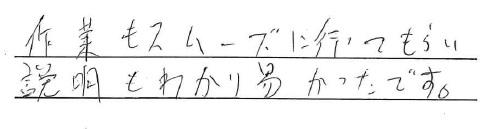 作業もスムーズに行ってもらい
説明もわかり易かったです。